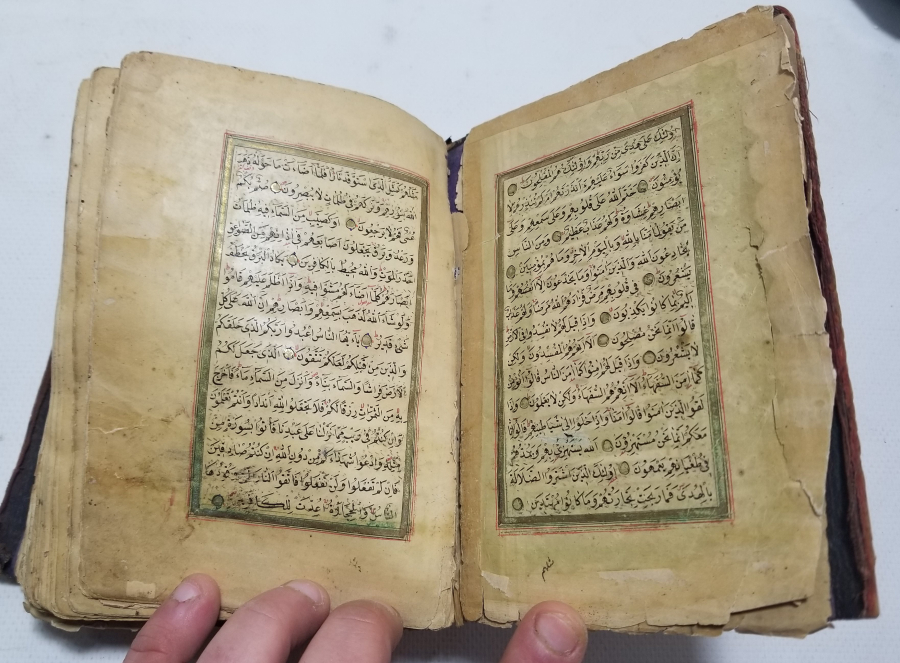 اولئك على هدى من ربهم واولئك هم المفلحون
ان الذين كفروا سواء عليهم ءانذرتهم ام لم تنذرهم لا
يؤمنون ختم الله على قلوبهم وعلى سمعهم وعلى
ابصارهم غشاوة ولهم عذاب عظيم ومن الناس
من يقول امنا بالله وباليوم الاخر وما هم بمؤمنين
يخادعون الله والذين امنوا وما يخدعون الا انفسهم وما
يشعرون في قلوبهم مرض فزادهم الله مرضا ولهم عذاب
اليم بما كانوا يكذبون واذا قيل لهم لا تفسدوا في الارض
قالوا انما نحن مصلحون الا انهم هم المفسدون ولكن
لا يشعرون واذا قيل لهم امنوا كما امن الناس قالوا انؤمن
كما امن السفهاء الا انهم هم السفهاء ولكن لا يعلمون واذا
لقوا الذين امنوا قالوا امنا واذا خلوا الى شياطينهم قالوا انا
معكم انما نحن مستهزؤن الله يستهزئ بهم ويمدهم
في طغيانهم يعمهون اولئك الذين اشتروا الضلالة
بالهدى فما ربحت تجارتهم وما كانوا مهتدين
مثلهم
مثلهم كمثل الذي استوقد نارا فلما اضاءت ما حوله ذهب
الله بنورهم وتركهم في ظلمات لا يبصرون صم بكم
عمي فهم لا يرجعون او كصيب من السماء فيه ظلمات
ورعد وبرق يجعلون اصابعهم في اذانهم من الصواعق
حذر الموت والله محيط بالكافرين يكاد البرق يخطف
ابصارهم كلما اضاء لهم مشوا فيه واذا اظلم عليهم قاموا
ولو شاء الله لذهب بسمعهم وابصارهم ان الله على كل
شيء قدير يا ايها الناس اعبدوا ربكم الذي خلقكم
والذين من قبلكم لعلكم تتقون الذي جعل لكم
الارض فراشا والسماء بناء وانزل من السماء ماء فاخرج
به من الثمرات رزقا لكم فلا تجعلوا لله اندادا وانتم تعلمون
وان كنتم في ريب مما نزلنا على عبدنا فاتوا بسورة من
مثله وادعوا شهداءكم من دون الله ان كنتم صادقين
فان لم تفعلوا ولن تفعلوا فاتقوا النار التي وقودها
الناس والحجارة اعدت للكافرين